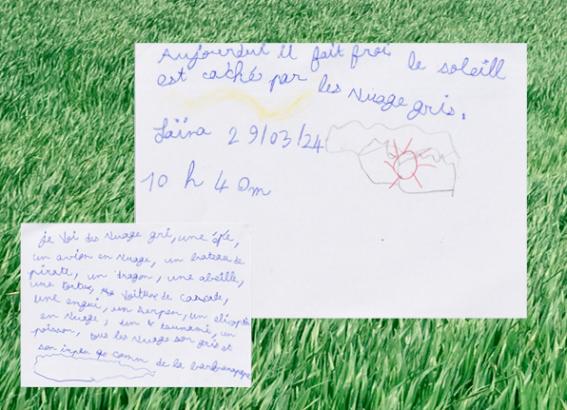 Aujourdui il fait froi le soleill
est caché par les nuage gris.
Laïna 29/03/24
10 h 40m
je voi des nuage gri, une épé,
un avion en nuage, un bateau de
pirate, un dragon, une abeille,
une tortue, voiture de
une engui, un serpen, un
en nuage, un tsunami, un
poisson, que les nuage son gris et
son comm de la